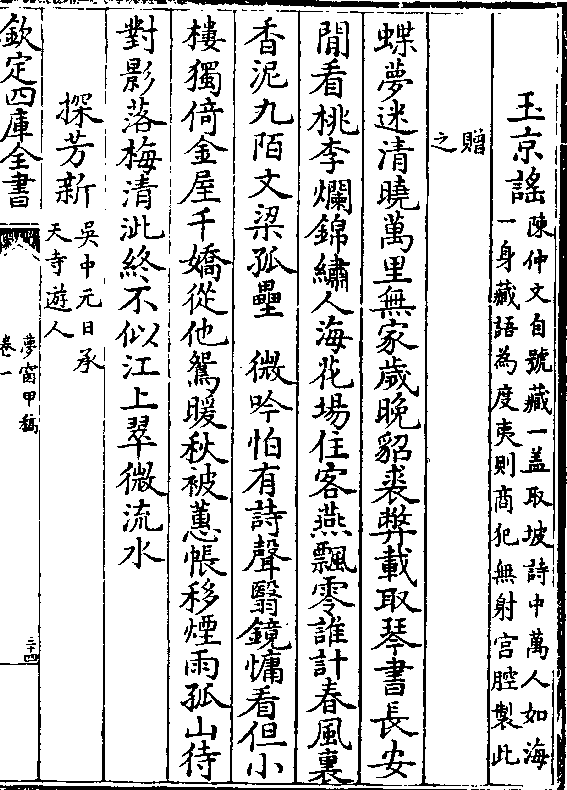 玉京謠 陳仲文自號藏一盖取坡詩中萬人如海
一身藏語為度夷則商犯無射宫腔製此
贈
之
蝶夢迷清曉萬里無家歲晚貂裘弊載取琴書長安
閒看桃李爛錦繡人海花場住客燕飄零誰計春風裏
香泥九陌文梁孤壘 微吟怕有詩聲翳鏡慵看但小
樓獨倚金屋千嬌從他鴛暖秋被蕙帳移煙雨孤山待
對影落梅清泚終不似江上翠微流水
探芳新 吳中元日承
天寺遊人
欽定四庫全書
夢窗甲稿
卷一
三十四